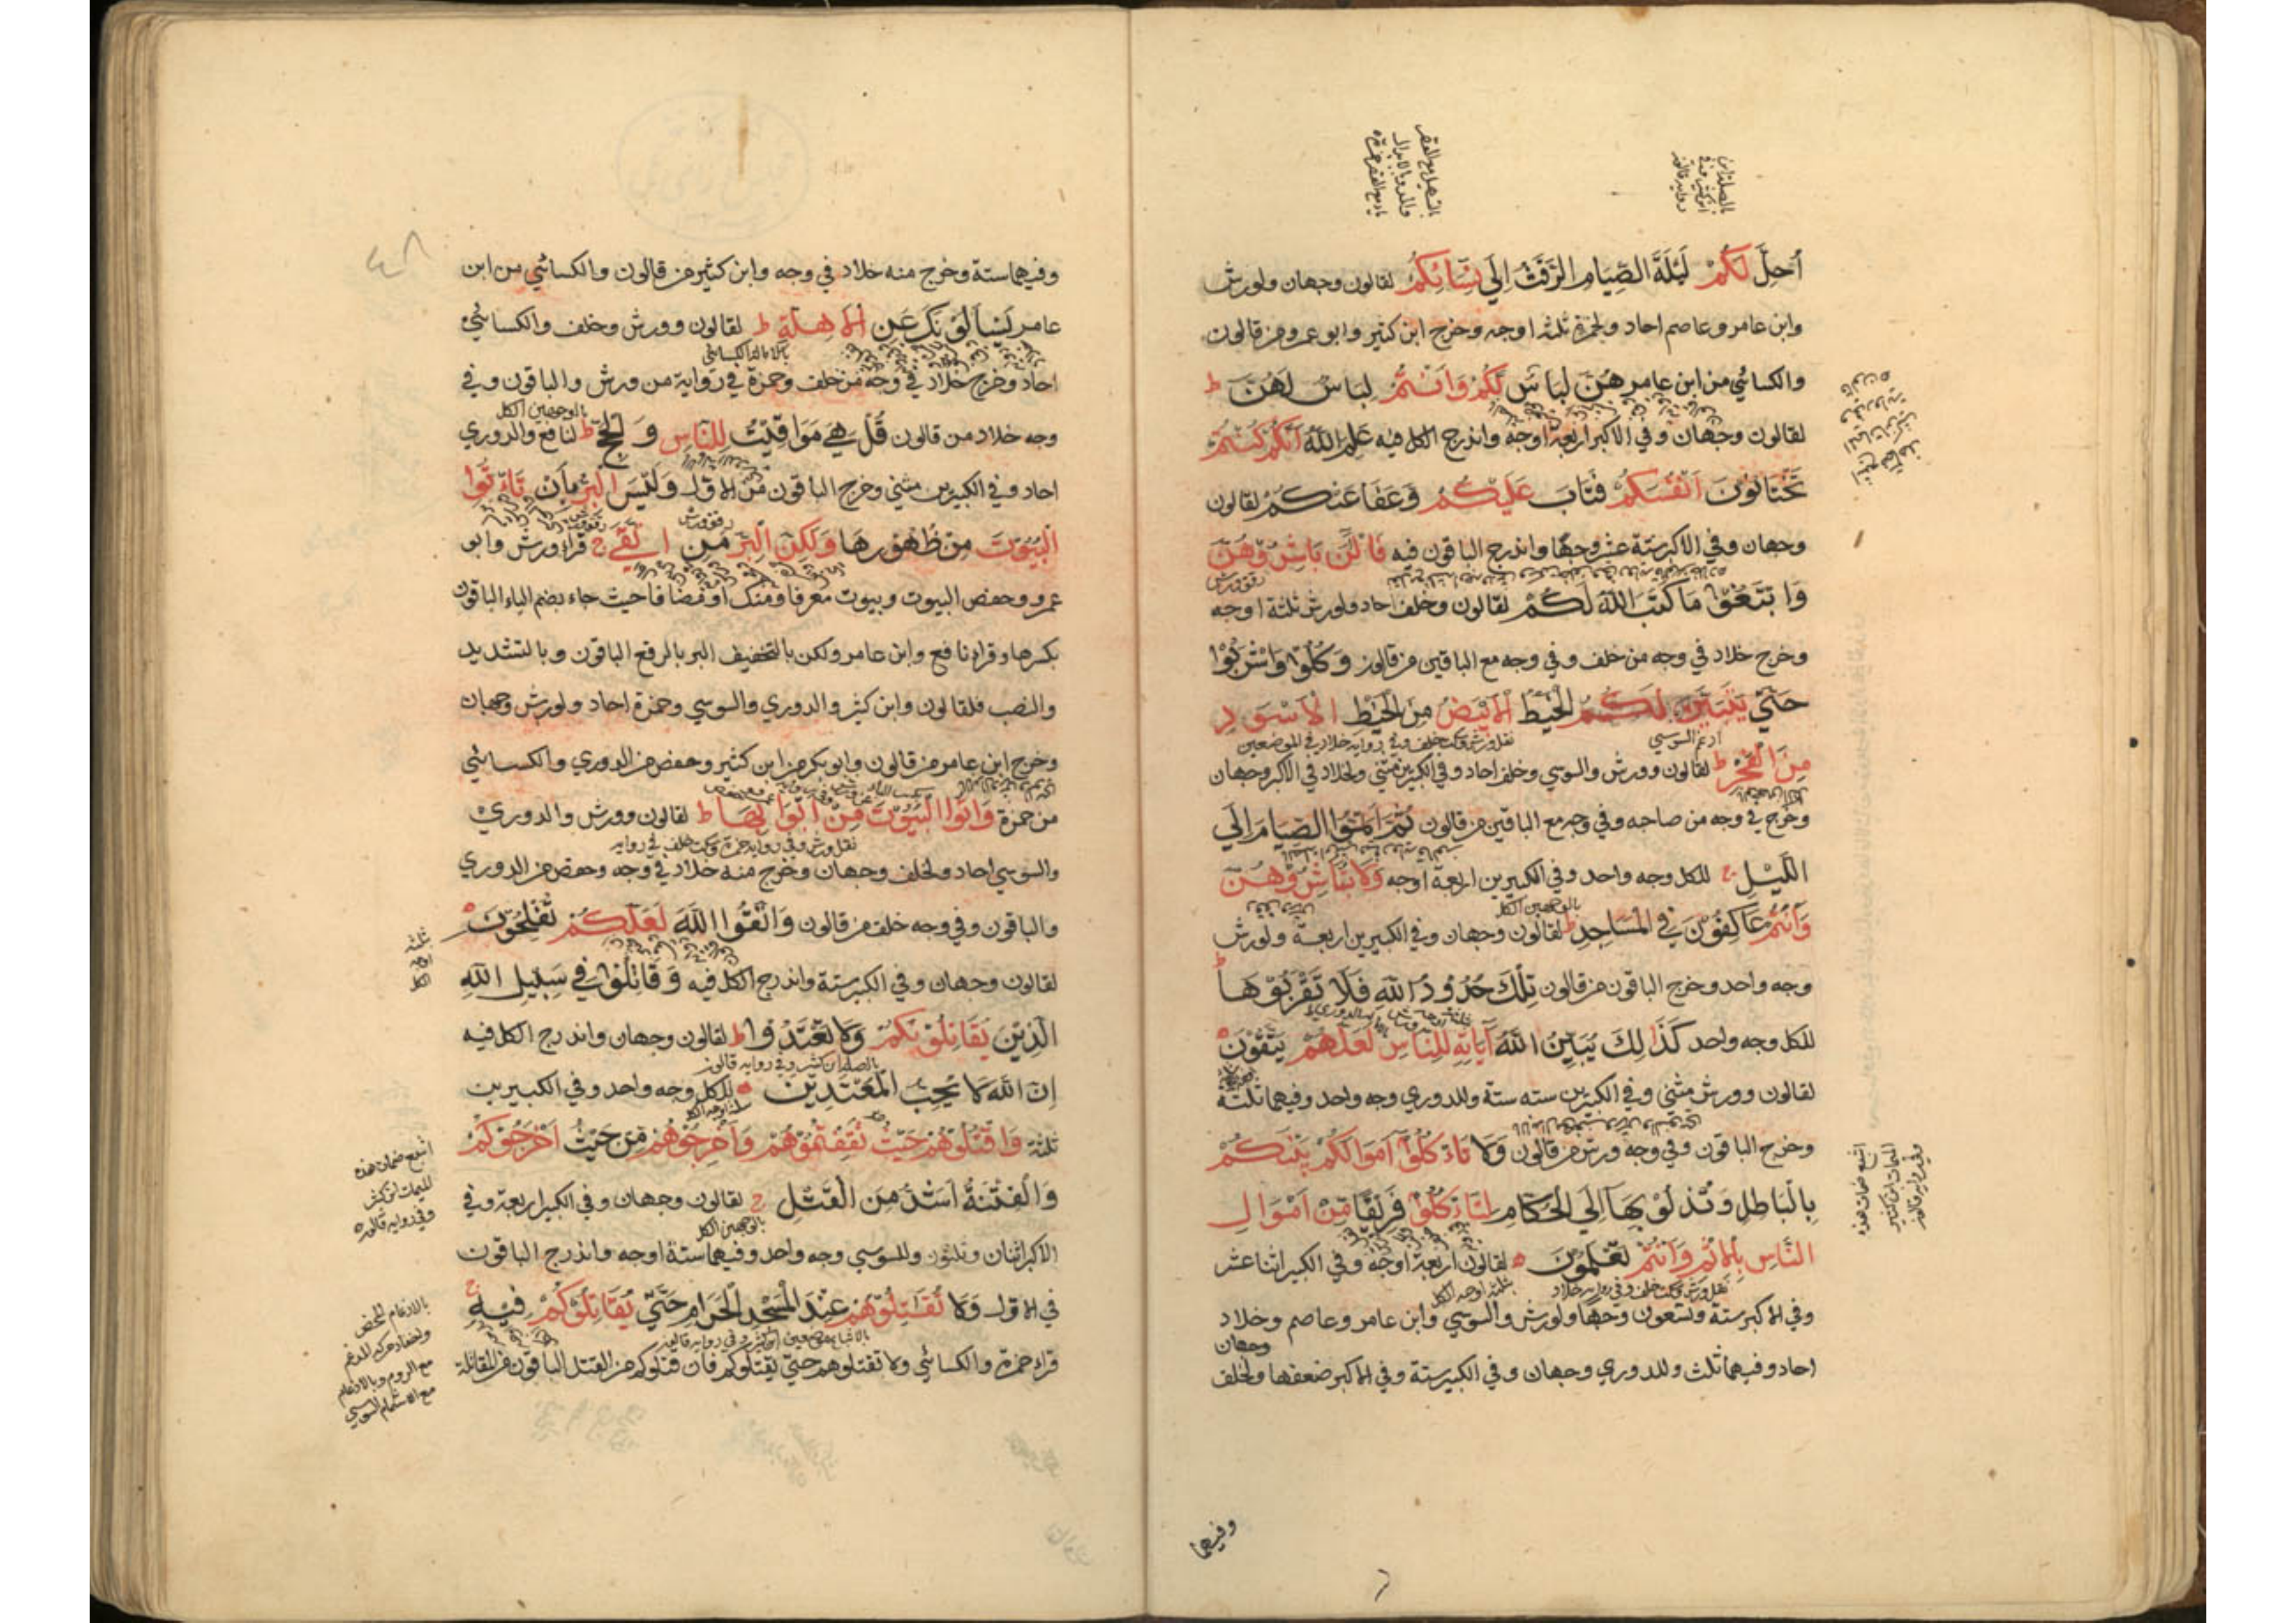 أُحِلَّ لَكُمْ لَيْلَةَ الصِّيَامِ الرَّفَثُ إِلَى نِسَائِكُمْ لقالون وجهان ولورش
وابن عامر وعاصم احاد ولحمزة ثلثة اوجه وخرج ابن كثير وابو عمرو من قالون
والكسائي من ابن عامر هُنَّ لِبَاسٌ لَكُمْ وَأَنْتُمْ لِبَاسٌ لَهُنَّ ط
لقالون وجهان وفي الاكبر اربعة اوجه واندرج الكل فيه عَلِمَ اللَّهُ أَنَّكُمْ كُنْتُمْ
تَخْتَانُونَ أَنْفُسَكُمْ فَتَابَ عَلَيْكُمْ وَعَفَا عَنْكُمْ لقالون
وجهان وفي الاكبر ستة عشر وجها واندرج الباقون فيه فَالْئَنَ بَاشِرُوهُنَّ
وَابْتَغُوا مَا كَتَبَ اللَّهُ لَكُمْ لقالون وخلف احاد ولورش ثلثة اوجه
وخرج خلاد في وجه من خلف وفي وجه مع الباقين من قالون وَكُلُوا وَاشْرَبُوا
حَتَّى يَتَبَيَّنَ لَكُمُ الْخَيْطُ الْأَبْيَضُ مِنَ الْخَيْطِ الْأَسْوَدِ
مِنَ الْفَجْرِ ط لقالون وورش والسوسي وخلف احاد وفي الكبيرين مثنى ولخلاد في الاكبر وجهان
وخرج في وجه من صاحبه وفي وجه مع الباقين من قالون ثُمَّ أَتِمُّوا الصِّيَامَ إِلَى
اللَّيْلِ ج للكل وجه واحد وفي الكبيرين اربعة اوجه وَلَا تُبَاشِرُوهُنَّ
وَأَنْتُمْ عَاكِفُونَ فِي الْمَسَاجِدِ ط لقالون وجهان وفي الكبيرين اربعة ولورش
وجه واحد وخرج الباقون من قالون تِلْكَ حُدُودُ اللَّهِ فَلَا تَقْرَبُوهَا ط
للكل وجه واحد كَذَلِكَ يُبَيِّنُ اللَّهُ آيَاتِهِ لِلنَّاسِ لَعَلَّهُمْ يَتَّقُونَ
لقالون وورش مثنى وفي الكبرين ستة ستة وللدوري وجه واحد وفيهما ثلثة
وخرج الباقون وفي وجه ورش من قالون وَلَا تَأْكُلُوا أَمْوَالَكُمْ بَيْنَكُمْ
بِالْبَاطِلِ وَتُدْلُوا بِهَا إِلَى الْحُكَّامِ لِتَأْكُلُوا فَرِيقًا مِنْ أَمْوَالِ
النَّاسِ بِالْإِثْمِ وَأَنْتُمْ تَعْلَمُونَ لقالون اربعة اوجه وفي الكبير اثنا عشر
وفي الاكبر ستة وتسعون وجها ولورش والسوسي وابن عامر وعاصم وخلاد
احاد وفيهما ثلث وللدوري وجهان وفي الكبير ستة وفي الاكبر ضعفها ولخلف وجهان
وفيهما
وفيهما ستة وخرج منه خلاد في وجه وابن كثير من قالون والكسائي من ابن
عامر يَسْأَلُونَكَ عَنِ الْأَهِلَّةِ ط لقالون وورش وخلف والكسائي
احاد وخرج خلاد في وجه من خلف وحمزة في رواية من ورش والباقون وفي
وجه خلاد من قالون قُلْ هِيَ مَوَاقِيتُ لِلنَّاسِ وَالْحَجِّ ط لنافع والدوري
احاد وفي الكبيرين مثنى وخرج الباقون من الاول وَلَيْسَ الْبِرُّ بِأَنْ تَأْتُوا
الْبُيُوتَ مِنْ ظُهُورِهَا وَلَكِنَّ الْبِرَّ مَنِ اتَّقَى ج قرا ورش وابو
عمرو وحفص البيوت وبيوت معرفا ومنكرا ومضافا حيث جاء بضم الباء الباقون
بكسرها وقرا نافع وابن عامر ولكن بالتخفيف البر بالرفع الباقون وبالتشديد
والنصب فلقالون وابن كثير والدوري والسوسي وحمزة احاد ولورش وجهان
وخرج ابن عامر من قالون وابو بكر من ابن كثير وحفص من الدوري والكسائي
من حمزة وَأْتُوا الْبُيُوتَ مِنْ أَبْوَابِهَا ط لقالون وورش والدوري
والسوسي احاد ولخلف وجهان وخرج منه خلاد في وجه وحفص من الدوري
والباقون وفي وجه خلف من قالون وَاتَّقُوا اللَّهَ لَعَلَّكُمْ تُفْلِحُونَ
لقالون وجهان وفي الكبير ستة واندرج الكل فيه وَقَاتِلُوا فِي سَبِيلِ اللَّهِ
الَّذِينَ يُقَاتِلُونَكُمْ وَلَا تَعْتَدُوا ط لقالون وجهان واندرج الكل فيه
إِنَّ اللَّهَ لَا يُحِبُّ الْمُعْتَدِينَ للكل وجه واحد وفي الكبيرين
ثلثة وَاقْتُلُوهُمْ حَيْثُ ثَقِفْتُمُوهُمْ وَأَخْرِجُوهُمْ مِنْ حَيْثُ أَخْرَجُوكُمْ
وَالْفِتْنَةُ أَشَدُّ مِنَ الْقَتْلِ ج لقالون وجهان وفي الكبير اربعة وفي
الاكبر اثنان وثلثون وللسوسي وجه واحد وفيهما ستة اوجه واندرج الباقون
في الاول وَلَا تُقَاتِلُوهُمْ عِنْدَ الْمَسْجِدِ الْحَرَامِ حَتَّى يُقَاتِلُوكُمْ فِيهِ ج
قراء حمزة والكسائي ولا تقتلوهم حتى يقتلوكم فان قتلوكم من القتل الباقون من المقاتلة